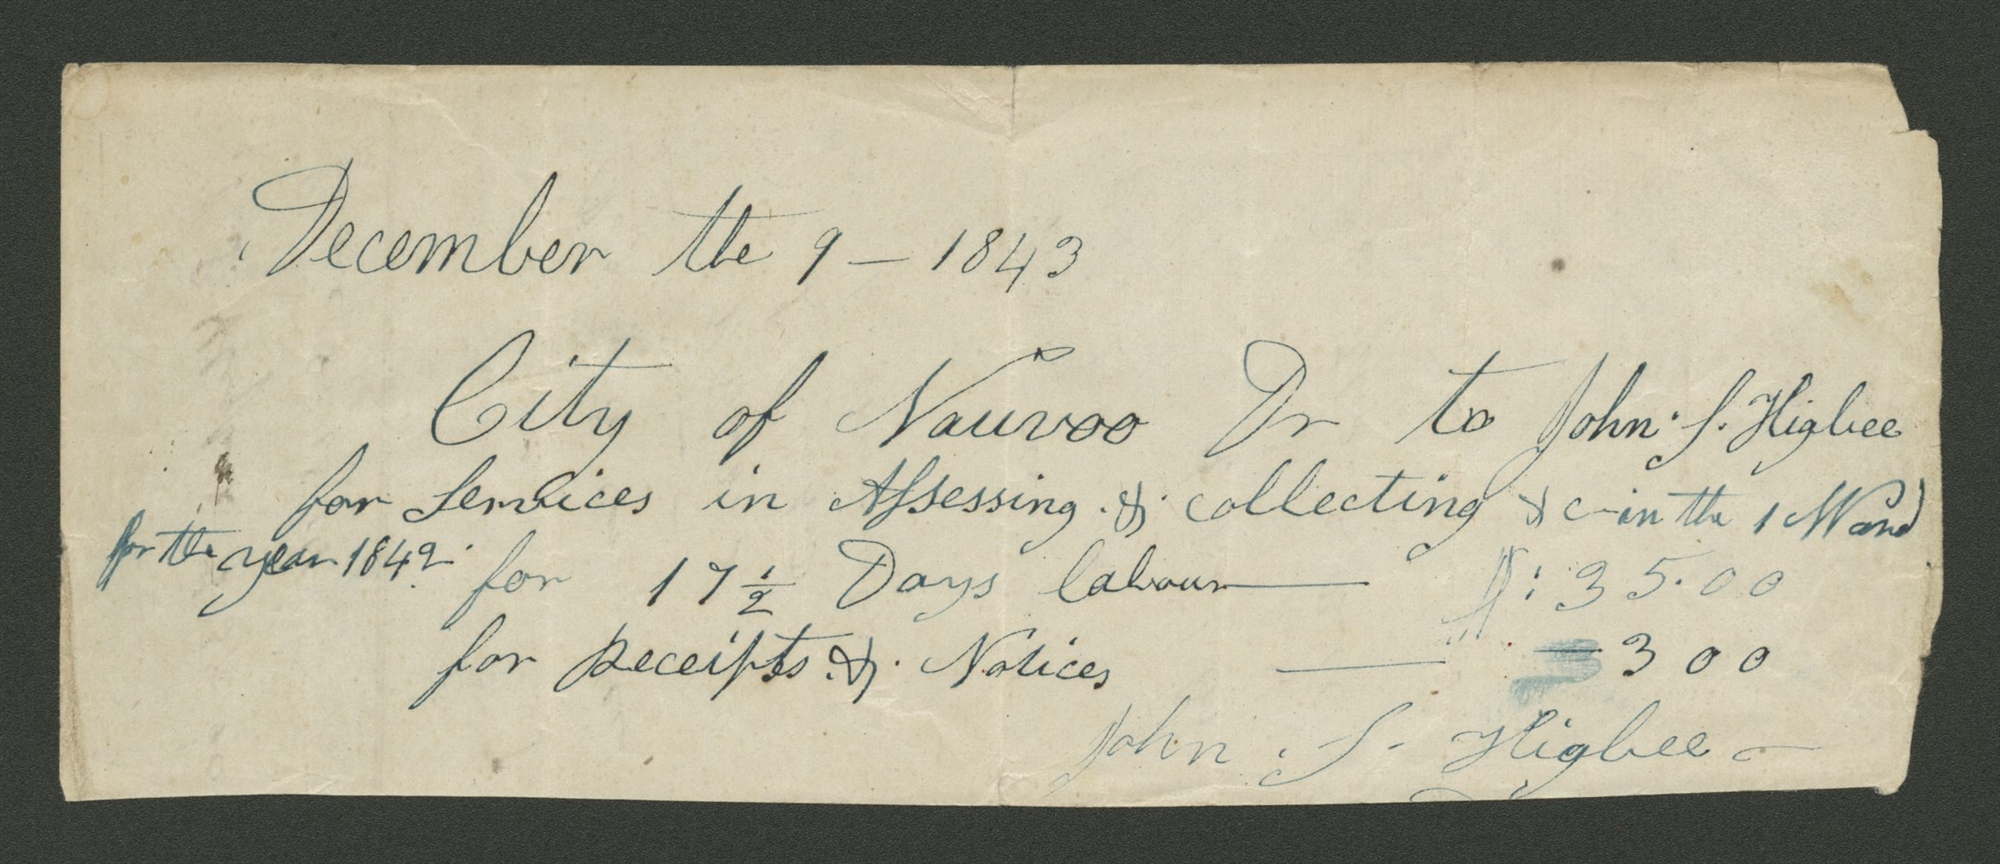 December the 9 — 1843
City of Nauvoo Dr to John S. Higbee
for Services in Assessing & collecting & c in the 1 Ward
for the year 1842
for 17 1/2 Days labour — $: 35.00
for Receipts & Notices — 3 00
John S. Higbee —